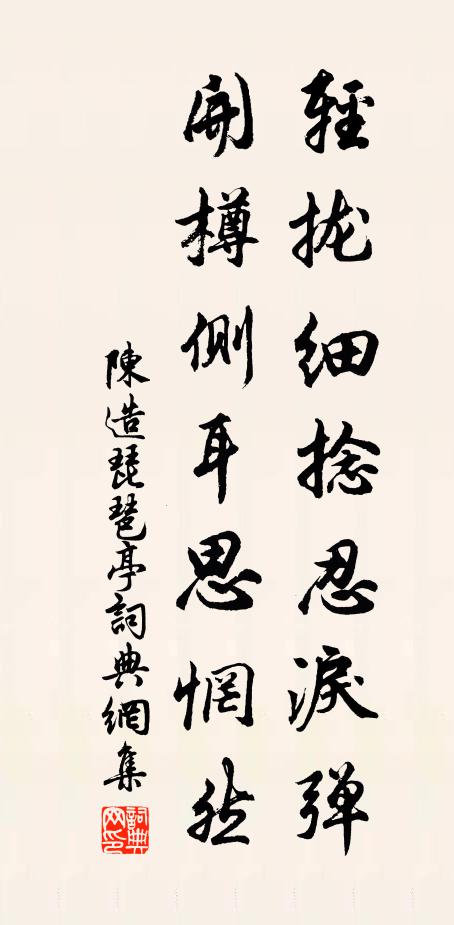 輕拢细捻忍淚弹
開樽側耳思惘然
陳造琵琶亭詞典網集
詞典网印